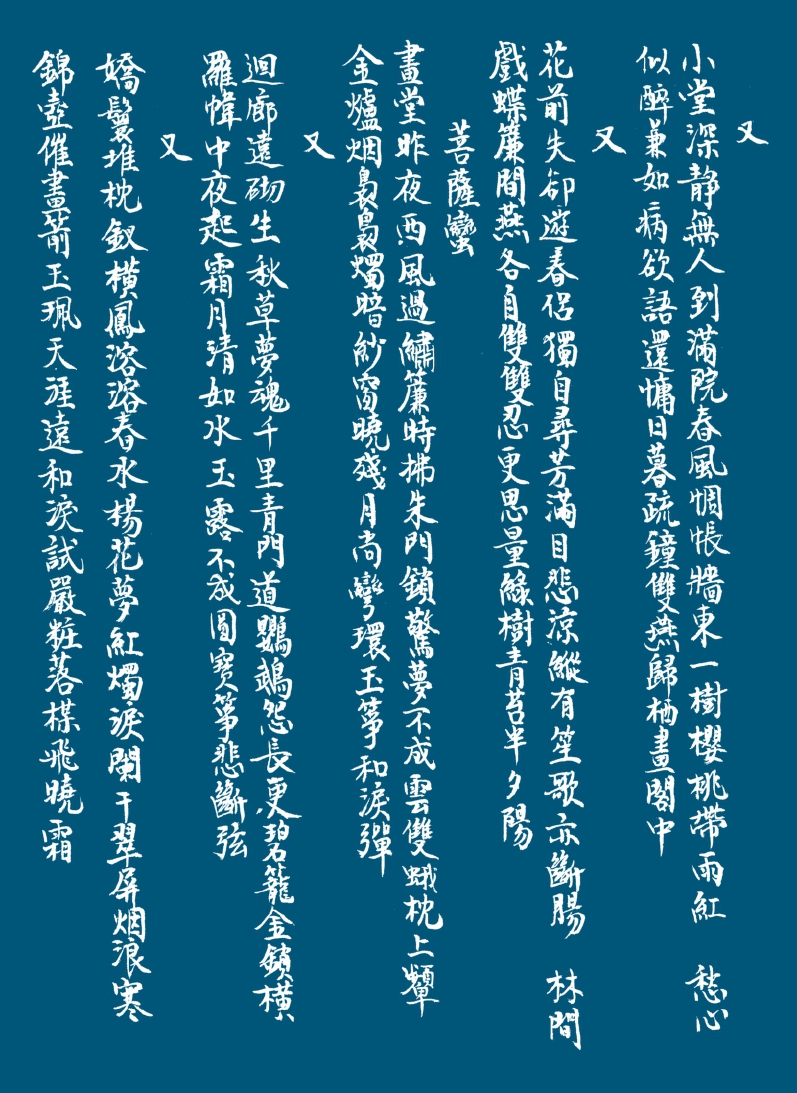 又
小堂深靜無人到滿院春風惆悵牆東一樹櫻桃帶雨紅　愁心
似醉兼如病欲語還慵日暮疏鐘雙燕歸栖畫閣中
又
花前失卻遊春侶獨自尋芳滿目悲涼縱有笙歌亦斷腸　林間
戲蝶簾間燕各自雙雙忍更思量綠樹青苔半夕陽
菩薩蠻
畫堂昨夜西風過繡簾時拂朱門鎖驚夢不成雲雙蛾枕上顰
金爐烟裊裊燭暗紗窗曉殘月尚彎環玉箏和淚彈
又
迴廊遠砌生秋草夢魂千里青門道鸚鵡怨長更碧籠金鎖橫
羅幃中夜起霜月清如水玉露不成圓寶箏悲斷弦
又
嬌鬟堆枕釵橫鳳溶溶春水楊花夢紅燭淚闌干翠屏烟浪寒
錦壺催畫箭玉珮天涯遠和淚試嚴粧落梅飛曉霜